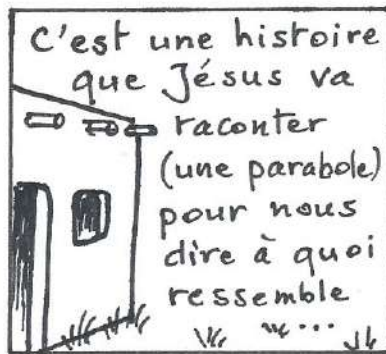 C'est une histoire
que Jésus va
raconter
(une parabole)
pour nous
dire à quoi
ressemble
...